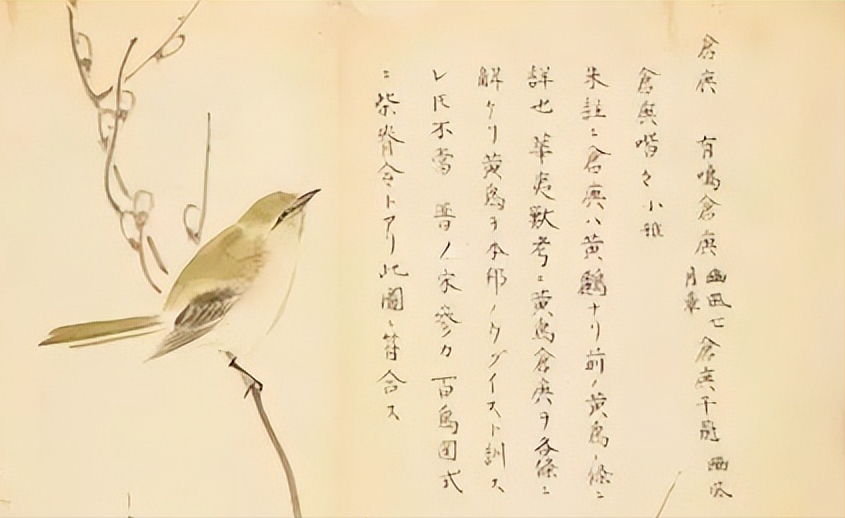 倉庚 有鳴倉庚 豳風七月章 倉庚于飛 豳風
倉庚喈々 小雅
朱註ニ倉庚ハ黄鸝ナリ前ノ黄鳥ノ條ニ
詳也 華夷獸考ニ黄鳥倉庚ヲ各條ニ
解ケリ黄鳥ヲ本邦ノウグイスト訓ス
レ氏不當 晋ノ宋 カ 百鳥図式
ニ柴脊令トアリ此圖ニ符合ス